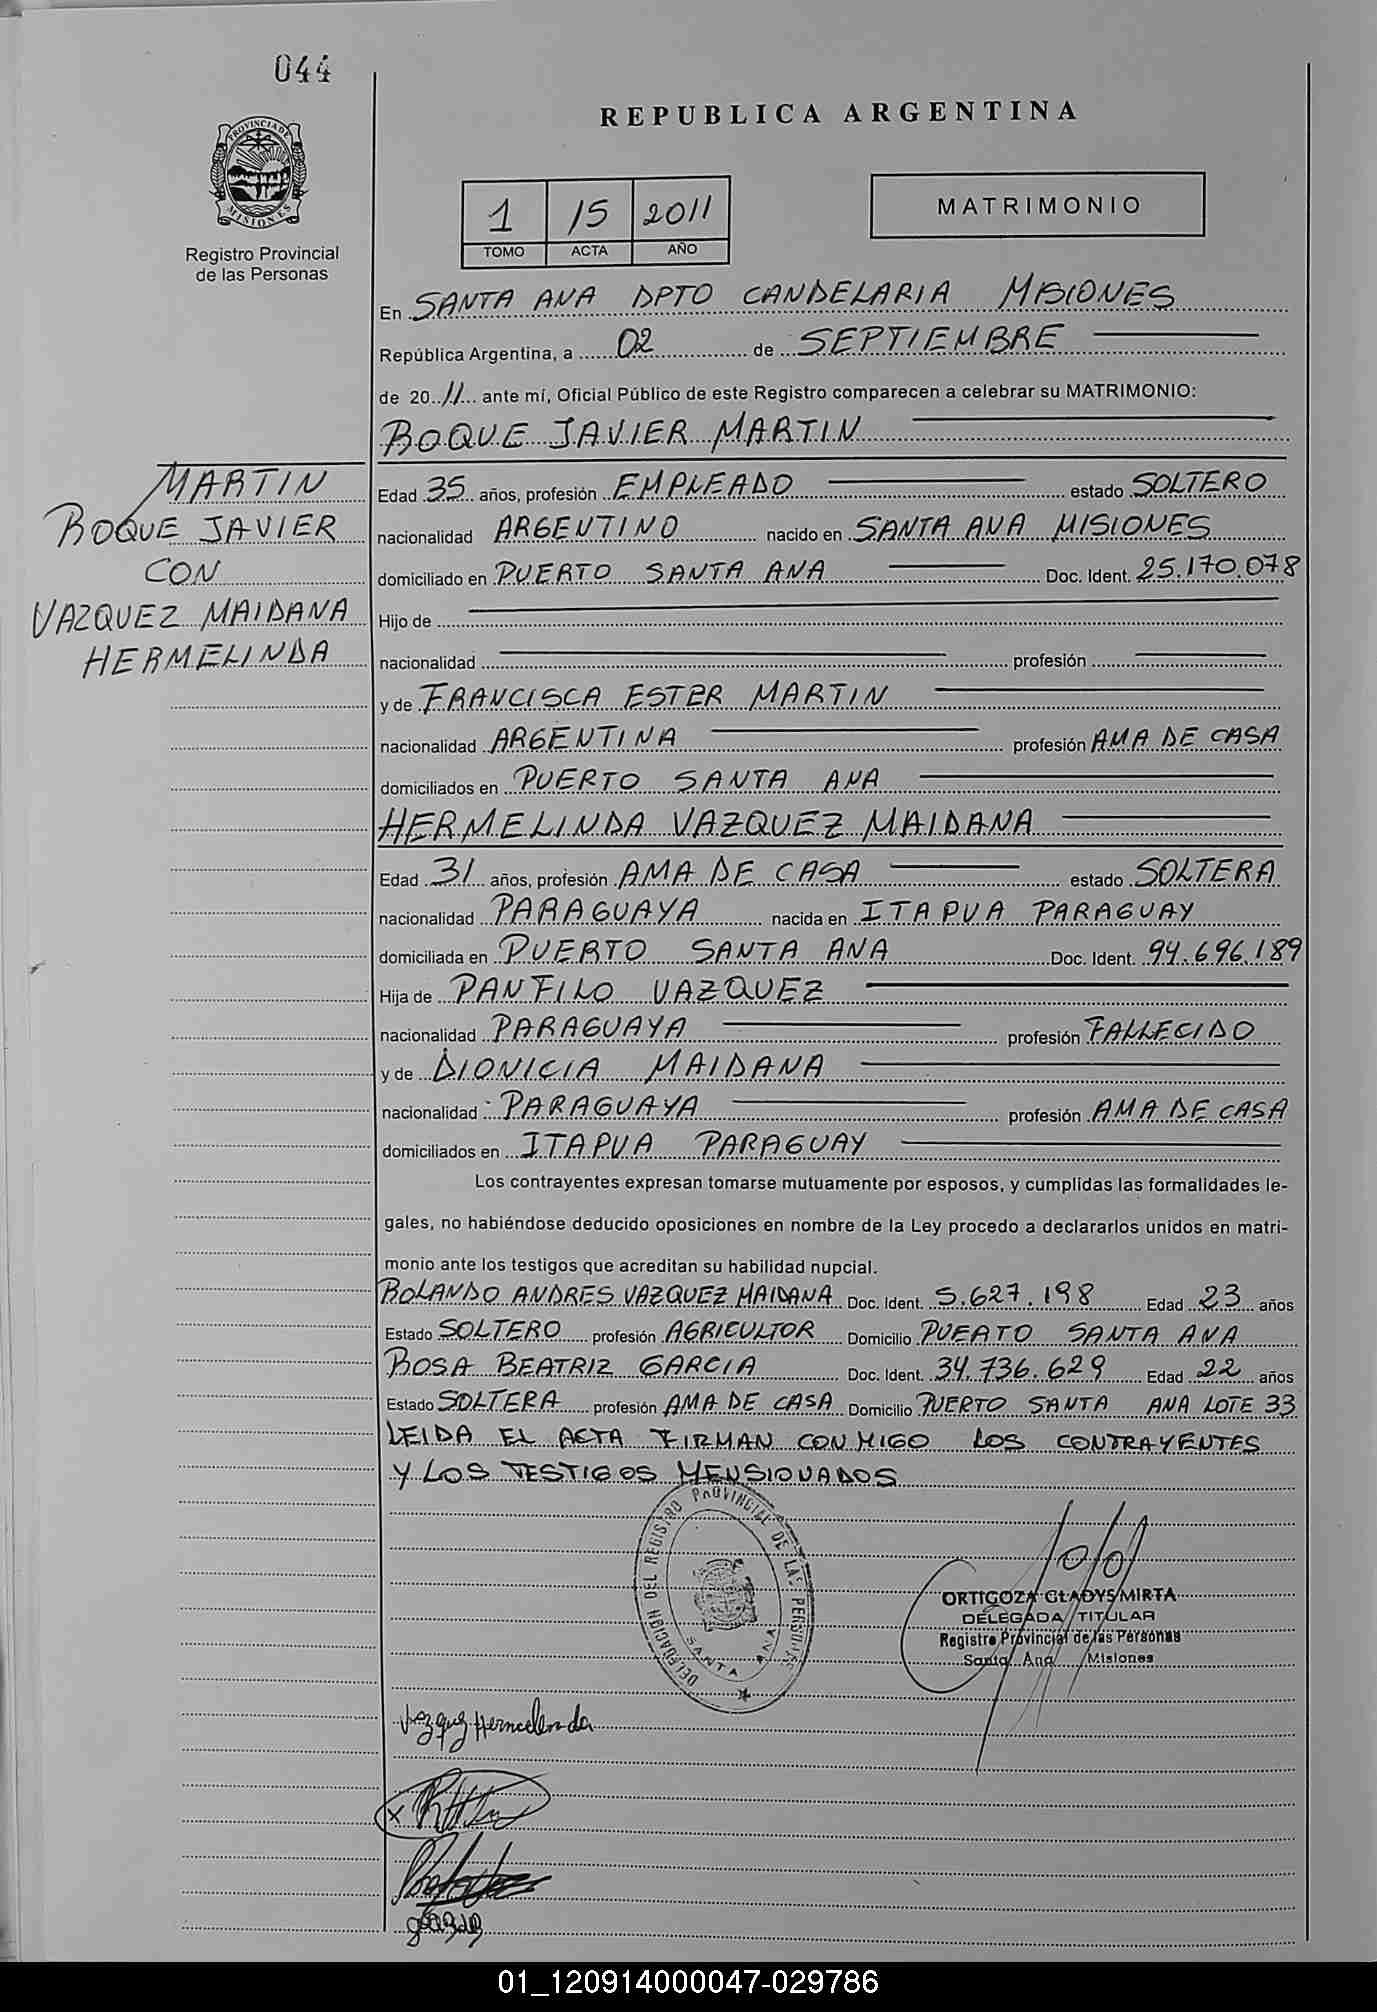 044
REPUBLICA ARGENTINA
PROVINCIA DE
MISIONES
Registro Provincial
de las Personas
1 15 2011
TOMO ACTA AÑO
MATRIMONIO
En SANTA ANA DPTO CANDELARIA MISIONES
República Argentina, a 02 de SEPTIEMBRE
de 20 11 ante mí, Oficial Público de este Registro comparecen a celebrar su MATRIMONIO:
ROQUE JAVIER MARTIN
MARTIN
ROQUE JAVIER
CON
VAZQUEZ MAIDANA
HERMELINDA
Edad 35 años, profesión EMPLEADO estado SOLTERO
nacionalidad ARGENTINO nacido en SANTA ANA MISIONES
domiciliado en PUERTO SANTA ANA Doc. Ident. 25.170.078
Hijo de
nacionalidad profesión
y de FRANCISCA ESTER MARTIN
nacionalidad ARGENTINA profesión AMA DE CASA
domiciliados en PUERTO SANTA ANA
HERMELINDA VAZQUEZ MAIDANA
Edad 31 años, profesión AMA DE CASA estado SOLTERA
nacionalidad PARAGUAYA nacida en ITAPUA PARAGUAY
domiciliada en PUERTO SANTA ANA Doc. Ident. 94.696.189
Hija de PANFILO VAZQUEZ
nacionalidad PARAGUAYA profesión FALLECIDO
y de DIONICIA MAIDANA
nacionalidad PARAGUAYA profesión AMA DE CASA
domiciliados en ITAPUA PARAGUAY
Los contrayentes expresan tomarse mutuamente por esposos, y cumplidas las formalidades le-
gales, no habiéndose deducido oposiciones en nombre de la Ley procedo a declararlos unidos en matri-
monio ante los testigos que acreditan su habilidad nupcial.
ROLANDO ANDRES VAZQUEZ MAIDANA Doc. Ident. 5.627.198 Edad 23 años
Estado SOLTERO profesión AGRICULTOR Domicilio PUERTO SANTA ANA
ROSA BEATRIZ GARCIA Doc. Ident. 34.736.629 Edad 22 años
Estado SOLTERA profesión AMA DE CASA Domicilio PUERTO SANTA ANA LOTE 33
LEIDA EL ACTA FIRMAN CONMIGO LOS CONTRAYENTES
Y LOS TESTIGOS MENSIONADOS
DELEGACION DEL REGISTRO PROVINCIAL DE LAS PERSONAS
SANTA ANA
ORTIGOZA GLADYS MIRTA
DELEGADA TITULAR
Registro Provincial de las Personas
Santa Ana Misiones
Vazquez Hermelinda
01_120914000047-029786